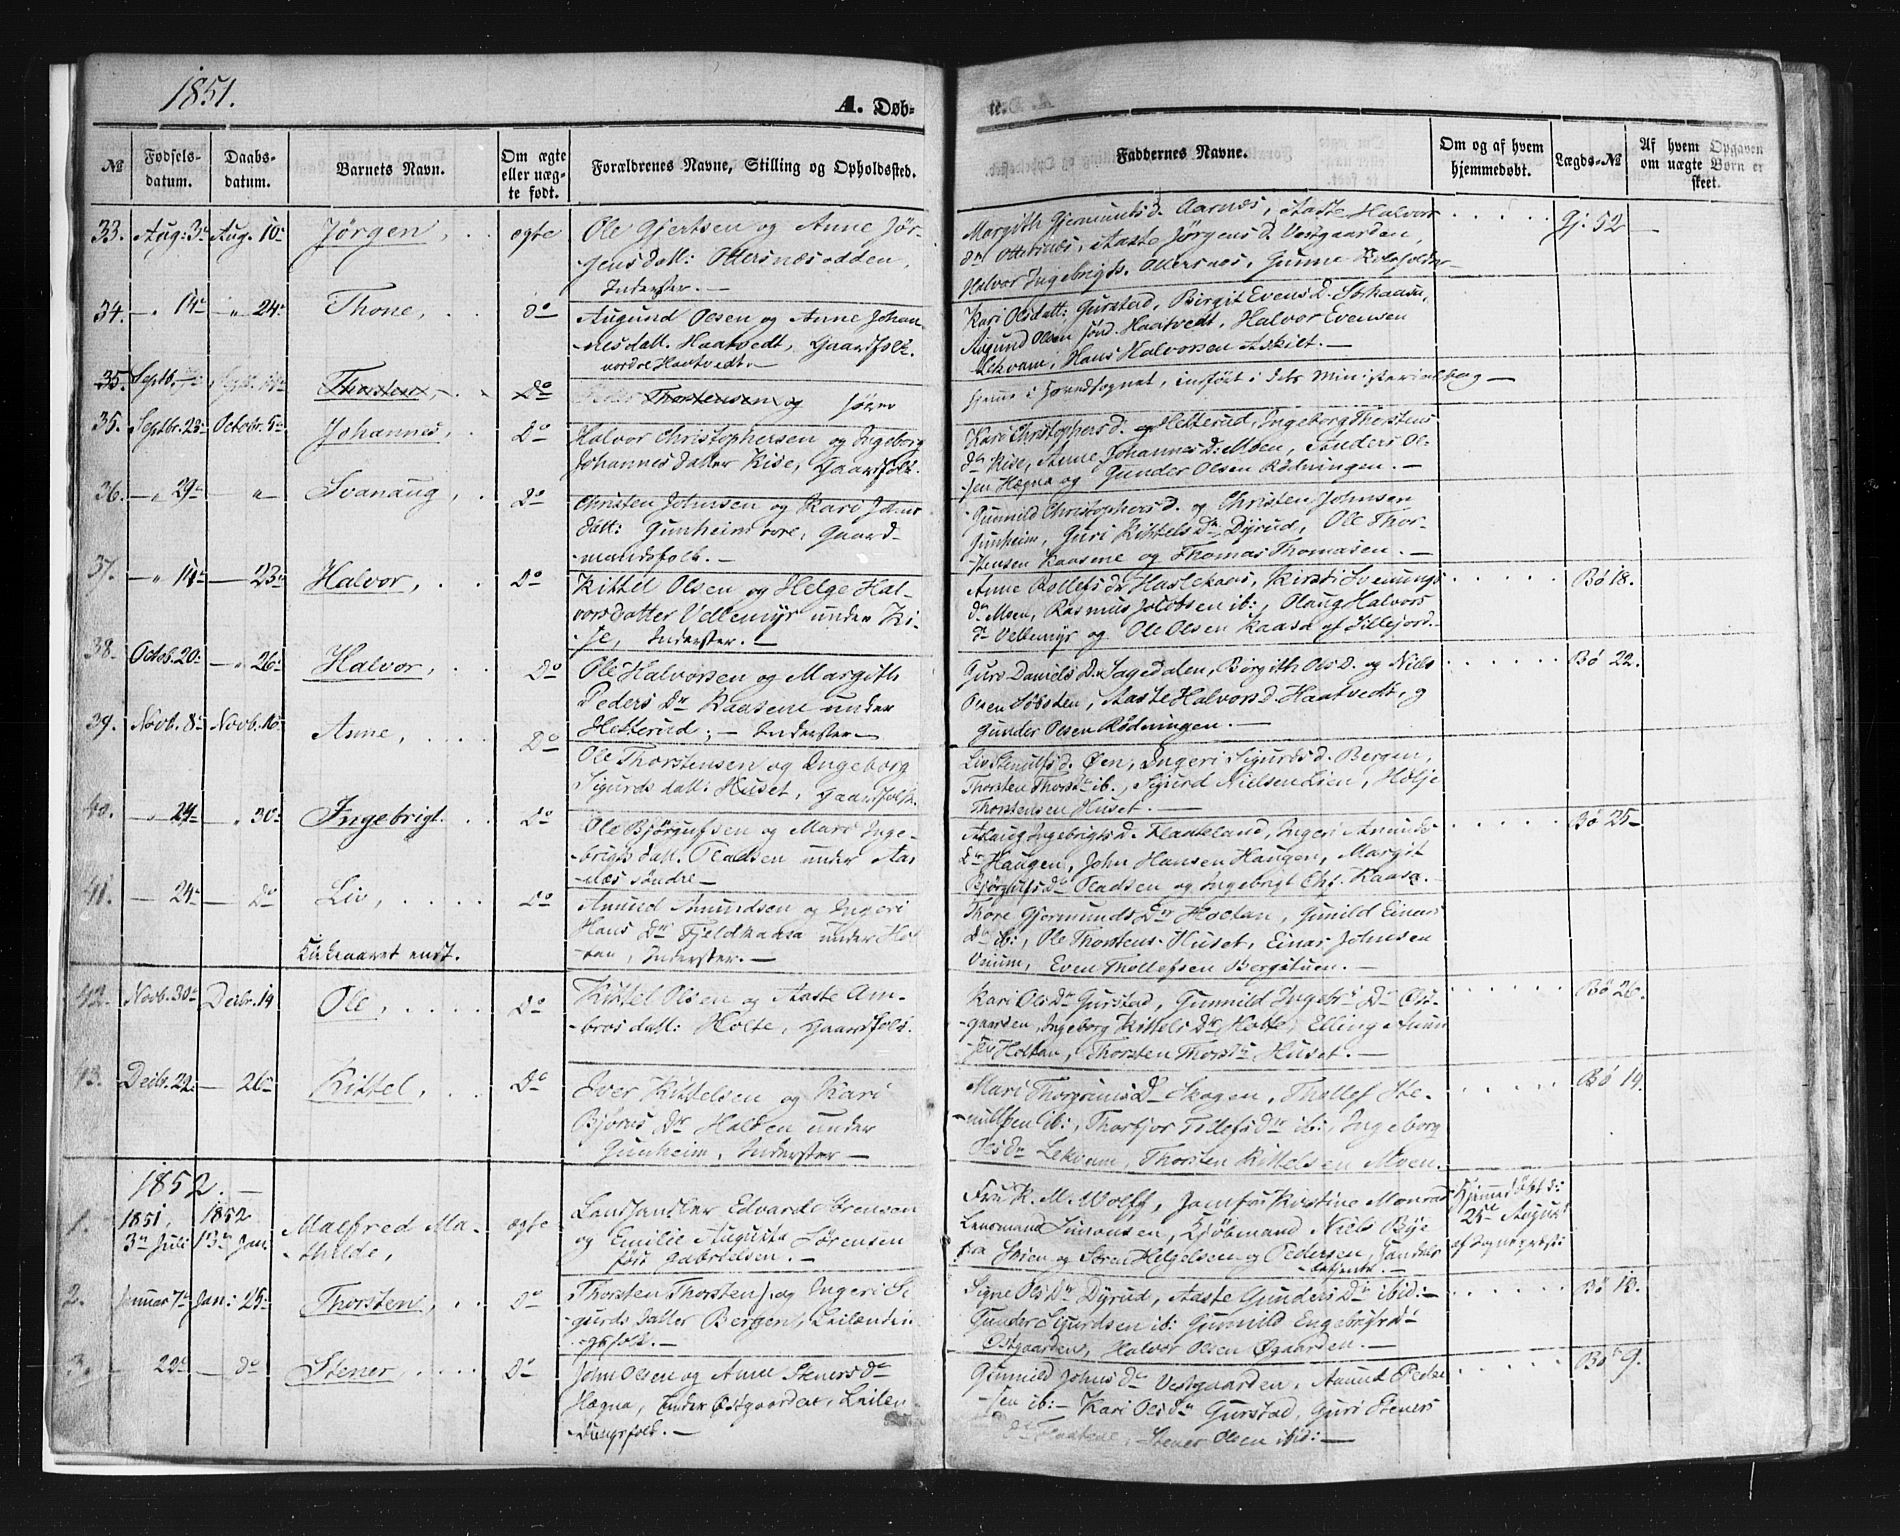 1851.
A. Døb-
№
Fødsels-
datum.
Daabs-
datum.
Barnets Navn.
Om ægte
eller uæg-
te født.
Forældrenes Navne, Stilling og Opholdssted.
Faddernes Navne.
Om og af hvem
hjemmedøbt.
Lægds-№
Af hvem Opgaven
om uægte Børn er
skeet.
33. Aug: 3die Aug. 10de Jørgen, . . ægte
Ole Gjertsen og Anne Jør-
gensdatt: Ottersnæsodden,
Inderster. —
Margith Gjermunds d. Aarnæs, Aaste Halvors
dr Ottersnæs, Aaste Jørgens d. Vestgaarden,
Halvor Ingebrigts. Ottersnæs, Gunne
Gj: 52 —
34. — " 14de — " 24de Thone, . . do
Augund Olsen og Anne Johan-
nesdatt. Haatvedt, Gaardfolk.
nordre Haatvedt. —
Kari Olsdatt: Gurstad, Birgit Evens D.
Augund Olsen sønd. Haatvedt, Halvor Evensen
Lekvam, Hans Halvorsen Askilt. —
35. Septb. Thorsten, Do
Thorstensen og
i Hovedsognet, indført i dets Ministerialbog —
35. Septbr. 23de Octobr. 5te Johannes, . . Do
Halvor Christophersen og Ingeborg
Johannesdatter Kise, Gaardfolk.
Kari Christophers d. Hetterud, Ingeborg Thorstens
dr Kise, Anne Johannes D: Moen, Anders Ol-
sen Hægna og Gunder Olsen Rødningen. —
36. — " 29de — " Svanaug, . . Do
Christen Johnsen og Kari Johns
datt: Gunheim øvre, Gaard-
mandsfolk. —
Gunnild Christophers d. og Christen Johnsen
Gunheim, Guri Kittels Dr Dyrud, Ole Thor-
stensen Kaasene og Thomas Thomasen. —
37. — " 14de — 23de Halvor, . . Do
Kittil Olsen og Helge Hal-
vorsdatter Vellemyr under Ki-
se, Inderster. —
Anne Rollefs dr Haslekaas, Kirsti Svennungs
dr Moen, Rasmus Jacobsen ib:, Olaug Halvors
dr Vellemyr og Ole Olsen Kaasa af Sillejord.
Bø 18.
38. Octob. 20de — " 26de Halvor, . . Do
Ole Halvorsen og Margith
Peders Dr Kaasene under
Hetterud; — Inderster —
Guro Daniels D. Sagedalen, Birgith Ols D. og Niels
Olsen Søbsten, Aaste Halvors d. Haatvedt, og
Gunder Olsen Rødningen. —
Bø 22.
39. Novb. 8de Novb. 16. Anne, . . . . Do
Ole Thorstensen og Ingeborg
Sigurds datt: Huset, Gaardfolk.
Liv Stenulfs d. Øen, Ingeri Sigurds d. Bergen,
Thorsten Thors Dr ib., Sigurd Nielsen Lien, Helje
Thorstensen Huset. —
40. — " 24de — " 30te Ingebrigt . . Do
Ole Bjørgulfsen og Mari Inge-
brigts datt. Pladsen under Aar-
næs søndre —
Aslaug Ingebrigts D. Flaateland, Ingeri Amunds
Dr Haugen, John Hansen Haugen, Margit
Bjørgulfs dr Pladsen og Ingebrigt Chr. Kaasa.
Bø 25 —
41. — 24de — Do Liv, . . . . Do
Amund Amundsen og Ingeri
Hans Dr Fjeldkaasa under Hol-
tan, Inderster. —
Thore Gjermunds Dr Holtan, Gunild Einars
Dr ib:, Ole Thorstens. Huset, Einar Johnsen
Uvium, Even Thollefsen Bergstuen. —
Kirkeaaret endt.
42. Novb. 30te Decbr. 14 Ole, . . . . Do
Kittel Olsen og Aaste Am-
bros datt: Holte, Gaardfolk.
Kari Ols Dr Gurstad, Gunnild Ingebr. Dr Øst-
gaarden, Ingeborg Kittels Dr Holte, Elling Amun
sen Holtan, Thorsten Thors Dr Huset. —
Bø 26.
43. Decbr. 22. — 26de Kittel, . . Do
Iver Kittelsen og Kari
Bjørns Dr Haltsen under
Gunheim, Inderster —
Mari Thorgrims Dr Skogen, Thollef Ste-
nulfsen ib:, Thorbjør Tollefs dr ib:, Ingeborg
Ols Dr Lekvam, Thorsten Kittelsen Moen.
Bø 14.
1852. —
1. 1851, 1852
3die Juli 13de Jan. Malfred Ma-
thilde, ægte
Landhandler Edvard Sørensen
og Emilie Augusta Sørensen
født Gabrielsen. —
Fru K. M. Wolff, Jomfru Kristine Monrad
Lensmand Simonsen, Kjøbmand Niels Bye
fra Skien og Søren Helgelsen og Pedersen, Handels-
betjente. —
Hjemmedøbt d:
25de August
af Sognepræst:
2. Januar 7de Jan: 25de Thorsten, . . Do
Thorsten Thorstens. og Ingeri Si-
gurds datter Bergen, Leilændin
gsfolk. —
Signe Ols Dr Dyrud, Aaste Gunders Dr ibid: —
Gunder Sigurdsen ib: Gunnild Engebrigts d
Østgaarden, Halvor Olsen Øgaarden. —
Bø 13.
3. — 22de — do Stener, . . . . Do
John Olsen og Anne Steners Dr
Hægna, under Østgaarden, Leilen-
dingsfolk. —
Gunnild Johns dr Vestgaarden, Amund Peder
sen ib: — Kari Ols Dr Gurstad, Guri Steners
Stener Olsen ibid: —
Bø 9.